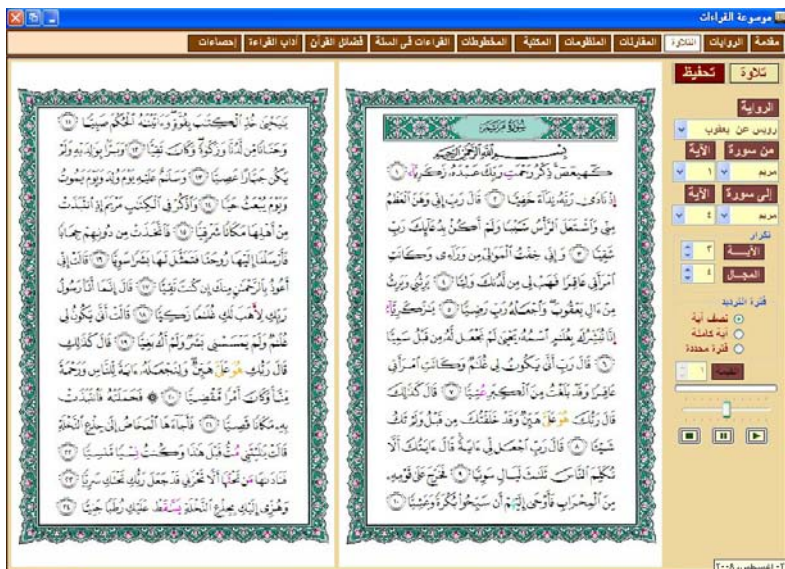 موسوعة القراءات
مقدمة الروايات التلاوة المقارنات المنظومات المكتبة المخطوطات القراءات في السنة فضائل القرآن آداب القراءة إحصاءات
تلاوة تحفيظ
الرواية
رويس عن يعقوب
من سورة الآية
مريم ١
إلى سورة الآية
مريم ٤
تكرار
الآيــــة ٣
المجـال ٤
فترة الترديد
نصف آية
آية كاملة
فترة محددة
القيمة ١
سورة مريم
بسم الله الرحمن الرحيم
كهيعص ذكر رحمت ربك عبده زكرياء ١
إذ نادى ربه نداء خفيا ٢ قال رب إنى وهن العظم
منى واشتعل الرأس شيبا ولم أكن بدعائك رب
شقيا ٣ وإنى خفت الموالى من وراءى وكانت
امرأتى عاقرا فهب لى من لدنك وليا ٤ يرثنى ويرث
من ءال يعقوب واجعله رب رضيا ٥ يزكرياء
إنا نبشرك بغلم اسمه يحيى لم نجعل له من قبل سميا
٦ قال رب أنى يكون لى غلم وكانت امرأتى
عاقرا وقد بلغت من الكبر عتيا ٧ قال كذلك
قال ربك هو على هين وقد خلقتك من قبل ولم تك
شيئا ٨ قال رب اجعل لى ءاية قال ءايتك ألا
تكلم الناس ثلث ليال سويا ٩ فخرج على قومه
من المحراب فأوحى إليهم أن سبحوا بكرة وعشيا ١٠
ييحيى خذ الكتب بقوة وءاتينه الحكم صبيا ١١
وحنانا من لدنا وزكوة وكان تقيا ١٢ وبرا بولديه ولم
يكن جبارا عصيا ١٣ وسلم عليه يوم ولد ويوم يموت
ويوم يبعث حيا ١٤ واذكر فى الكتب مريم إذ انتبذت
من أهلها مكانا شرقيا ١٥ فاتخذت من دونهم حجابا
فأرسلنا إليها روحنا فتمثل لها بشرا سويا ١٦ قالت إنى
أعوذ بالرحمن منك إن كنت تقيا ١٧ قال إنما أنا رسول
ربك لأهب لك غلما زكيا ١٨ قالت أنى يكون لى
غلم ولم يمسسنى بشر ولم أك بغيا ١٩ قال كذلك
قال ربك هو على هين ولنجعله ءاية للناس ورحمة
منا وكان أمرا مقضيا ٢٠ ۞ فحملته فانتبذت
به مكانا قصيا ٢١ فأجاءها المخاض إلى جذع النخلة
قالت يليتنى مت قبل هذا وكنت نسيا منسيا ٢٢
فنادىها من تحتها ألا تحزنى قد جعل ربك تحتك سريا ٢٣
وهزى إليك بجذع النخلة يسقط عليك رطبا جنيا ٢٤
أغسطس، ٢٠٠٨